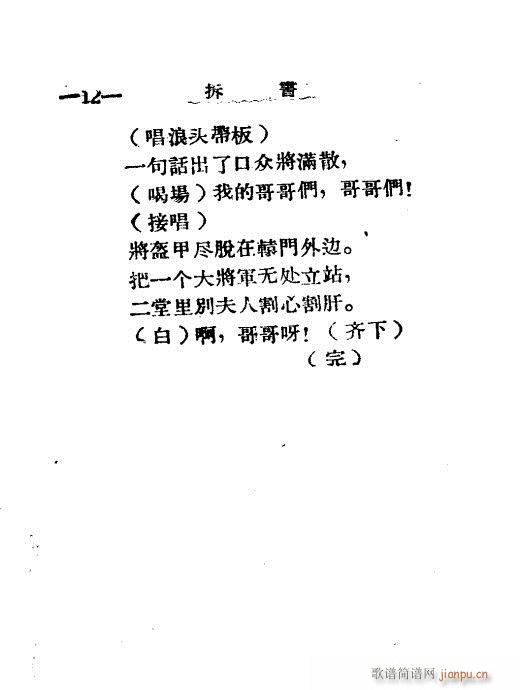 —12—
拆書
（唱浪头帶板）
一句話出了口众將滿散，
（喝場）我的哥哥們，哥哥們！
（接唱）
將盔甲尽脫在轅門外边。
把一个大將軍无处立站，
二堂里別夫人割心割肝。
（白）啊，哥哥呀！（齐下）
（完）
歌谱简谱网
jianpu.cn